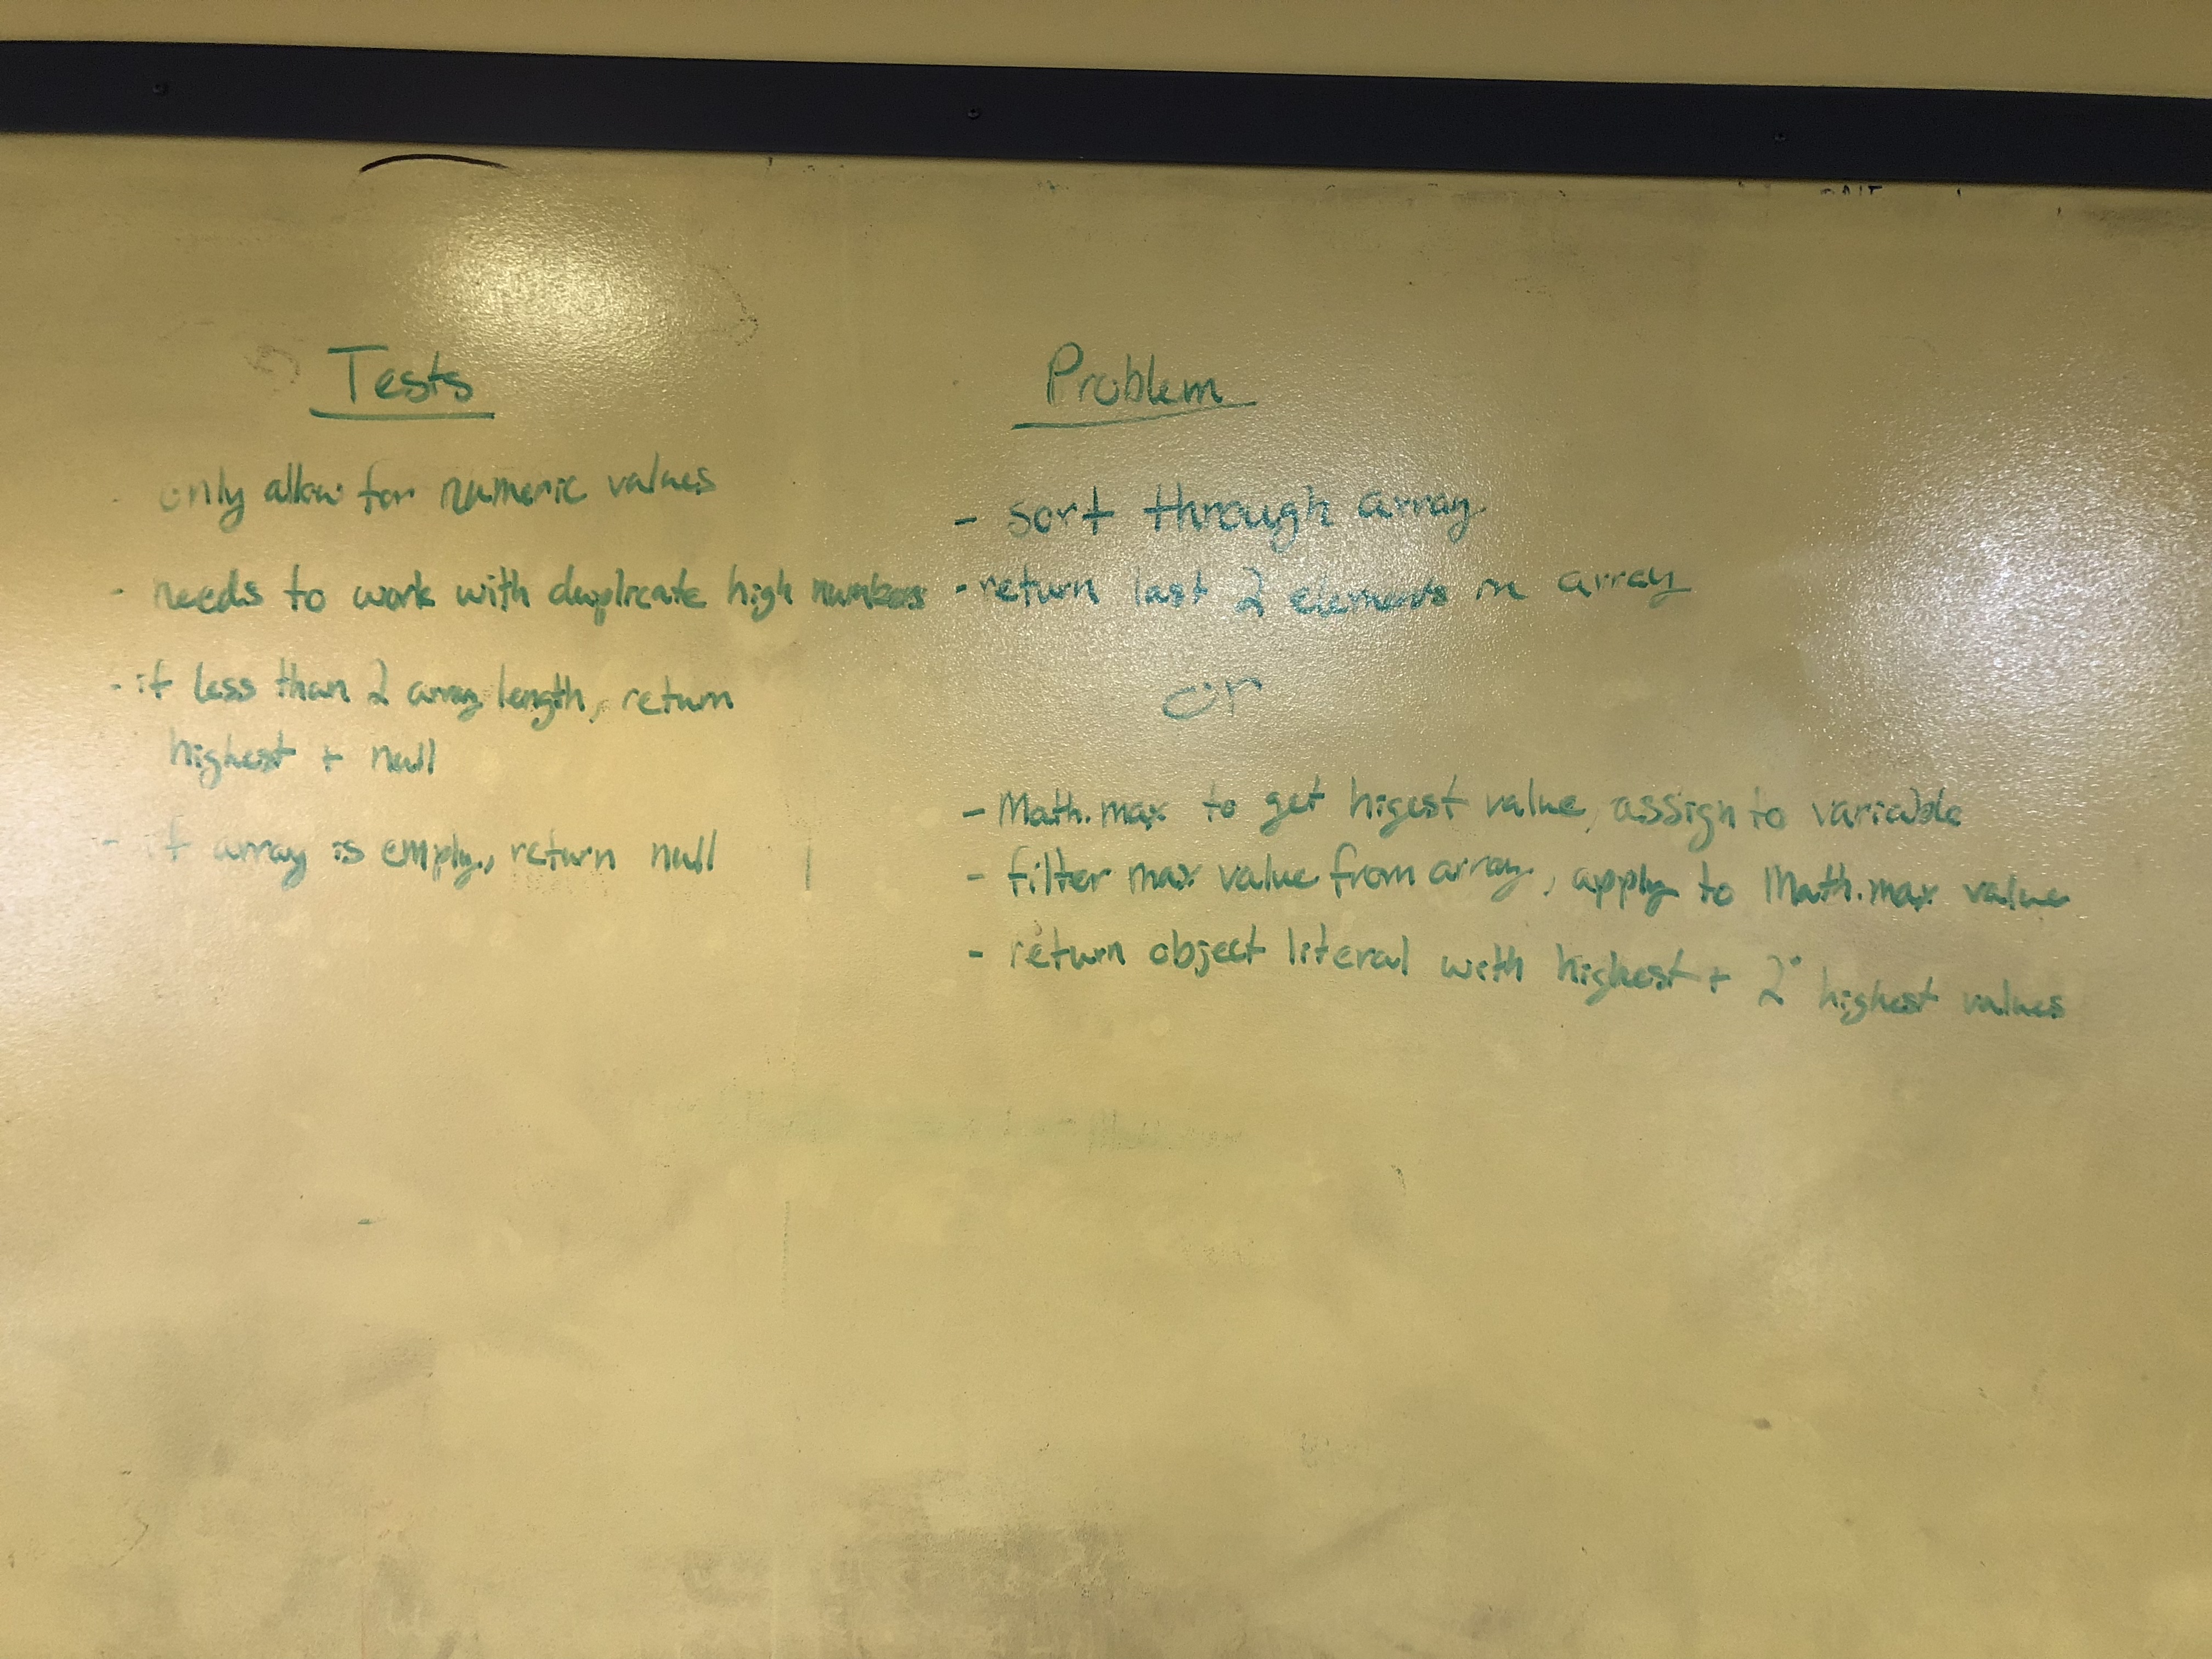 Tests
only allow for numeric values
- needs to work with duplicate high numbers
- if less than 2 array length, return
highest + null
- if array is empty, return null
Problem
- sort through array
- return last 2 elements in array
or
- Math.max to get higest value, assign to variable
- filter max value from array, apply to Math.max value
- return object literal with highest + 2° highest values